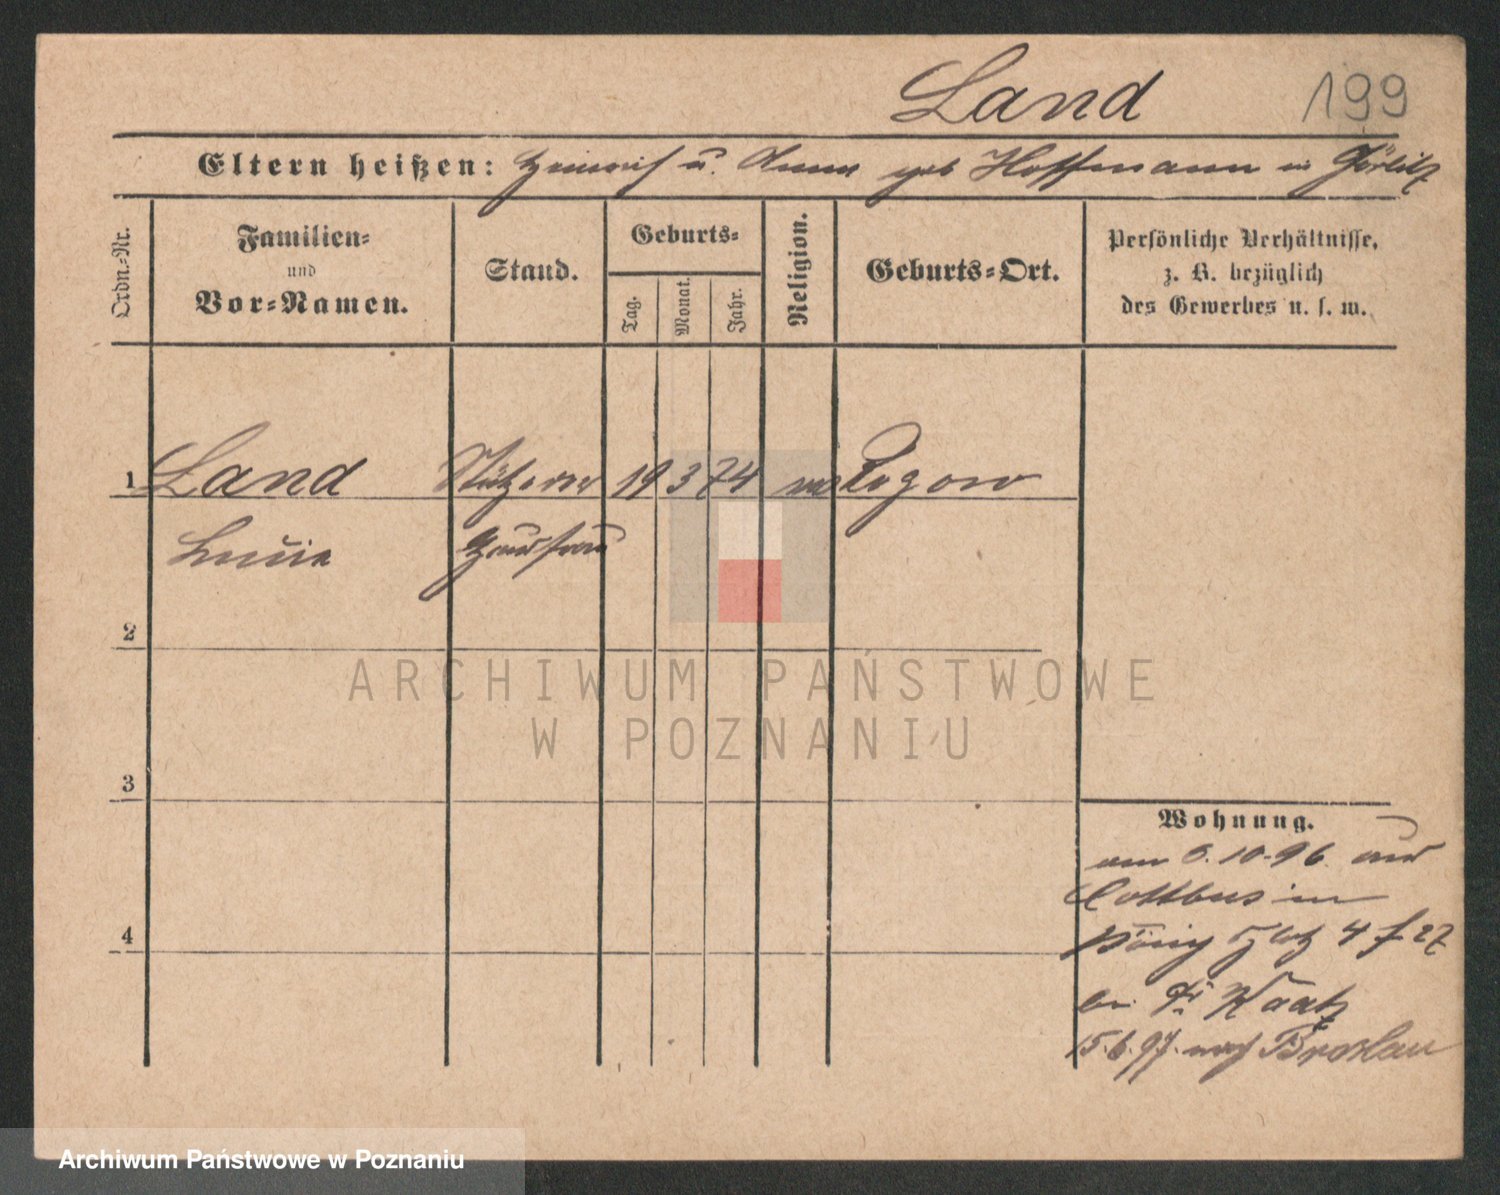 Land 199
Eltern heißen: Heinrich u. Anna geb Hoffmann in Görlitz
Ordn.-Nr.
Familien-
und
Vor-Namen.
Stand.
Geburts-
Tag.
Monat.
Jahr.
Religion.
Geburts-Ort.
Persönliche Verhältnisse,
z. B. bezüglich
des Gewerbes u. s. w.
1 Land Stütze der 19 3 74 Pogorz
Hausfrau
2
ARCHIWUM PAŃSTWOWE
W POZNANIU
3
Wohnung.
am 8.10.96 aus
Cottbus in
König Platz 4 f 27
bei Dr. Kaatz
4
15.6.97. nach Breslau
Archiwum Państwowe w Poznaniu